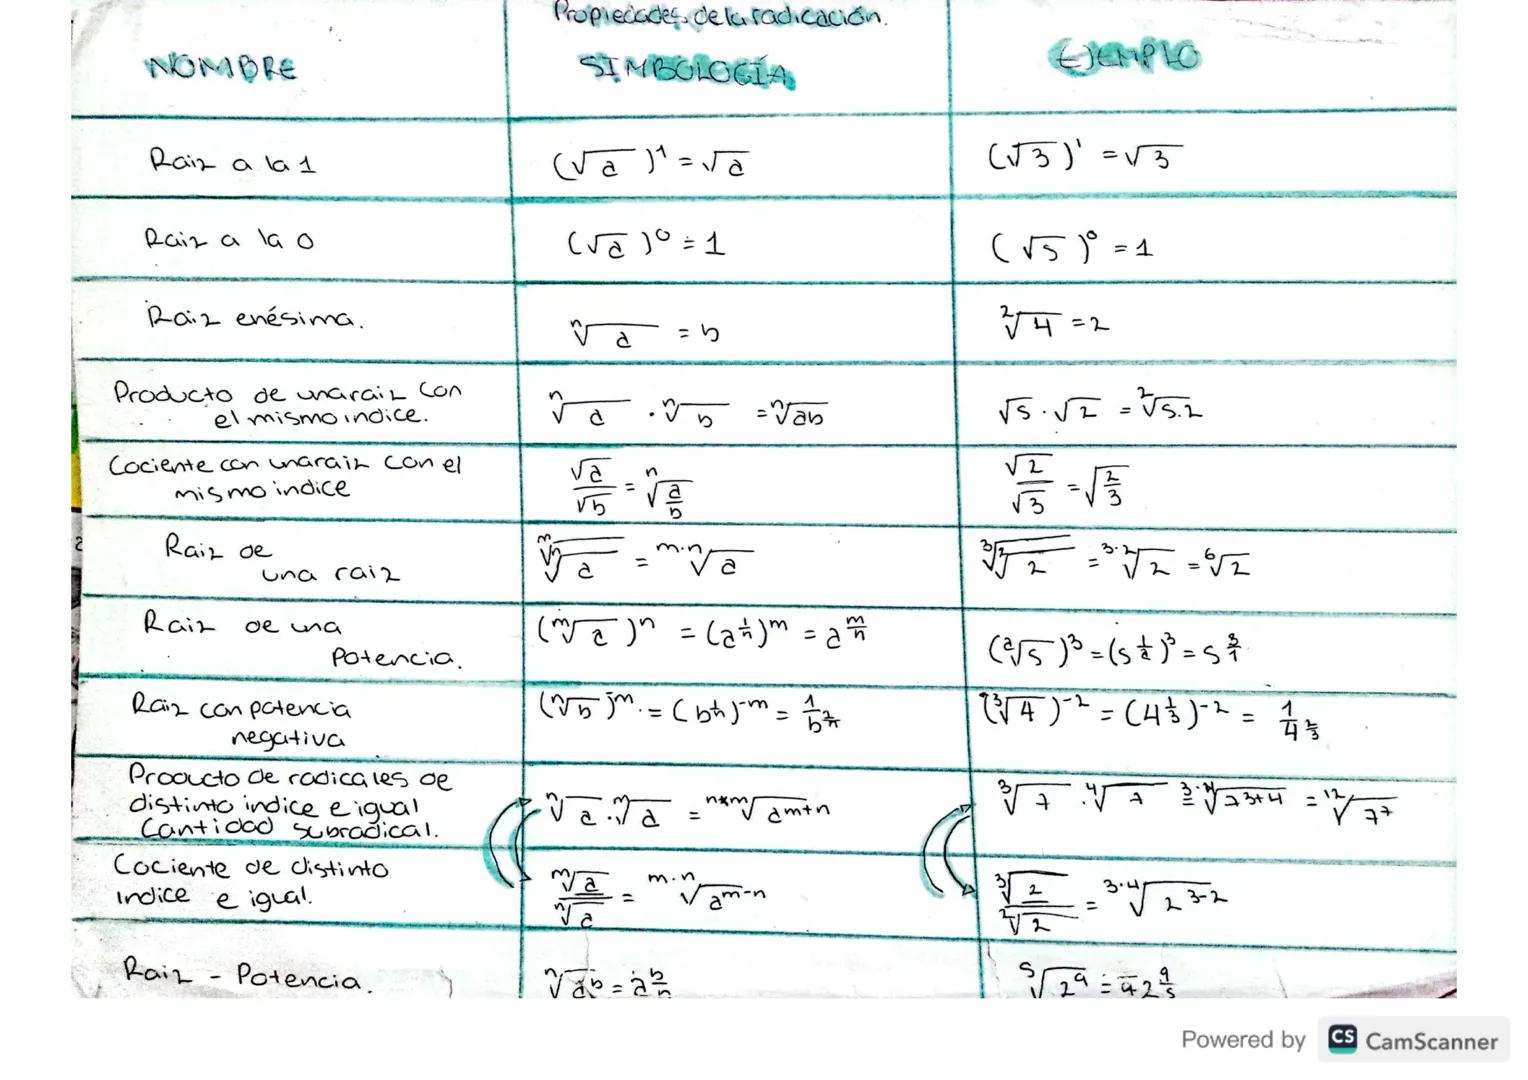 Propiedades de la radicación.
NOMBRE SIMBOLOGÍA EJEMPLO
Raiz a la 1 (√a)¹ = √a (√3)¹ = √3
Raiz a la 0 (√a)⁰ = 1 (√5)⁰ = 1
Raiz enésima. ⁿ√a = b ²√4 = 2
Producto de una raiz con
el mismo indice. ⁿ√a · ⁿ√b = ⁿ√ab √5 · √2 = ²√5.2
Cociente con una raiz con el
mismo indice √a/√b = ⁿ√(a/b) √2/√3 = √(2/3)
Raiz de
una raiz ᵐ√ⁿ√a = ᵐ·ⁿ√a ³√²√2 = ³·²√2 = ⁶√2
Raiz de una
Potencia. (ᵐ√a)ⁿ = (a^(1/n))^m = a^(m/n) (²√5)³ = (5^(1/2))³ = 5^(3/1)
Raiz con potencia
negativa (ⁿ√b)^-m = (b^(1/n))^-m = 1/b (³√4)^-2 = (4^(1/3))^-2 = 1/4^(2/3)
Producto de radicales de
distinto indice e igual
Cantidad subradical. ⁿ√a · ᵐ√a = ⁿ*ᵐ√a^(m+n) ³√7 · ⁴√7 = ³·⁴√7^(3+4) = ¹²√7⁷
Cociente de distinto
indice e igual. ᵐ√a/ⁿ√a = ᵐ·ⁿ√a^(m-n) ³√2/²√2 = ³·⁴√2^(3-2)
Raiz - Potencia. ⁿ√a^b = a^(b/n) ⁵√2⁹ = 2^(9/5)
Powered by CS CamScanner